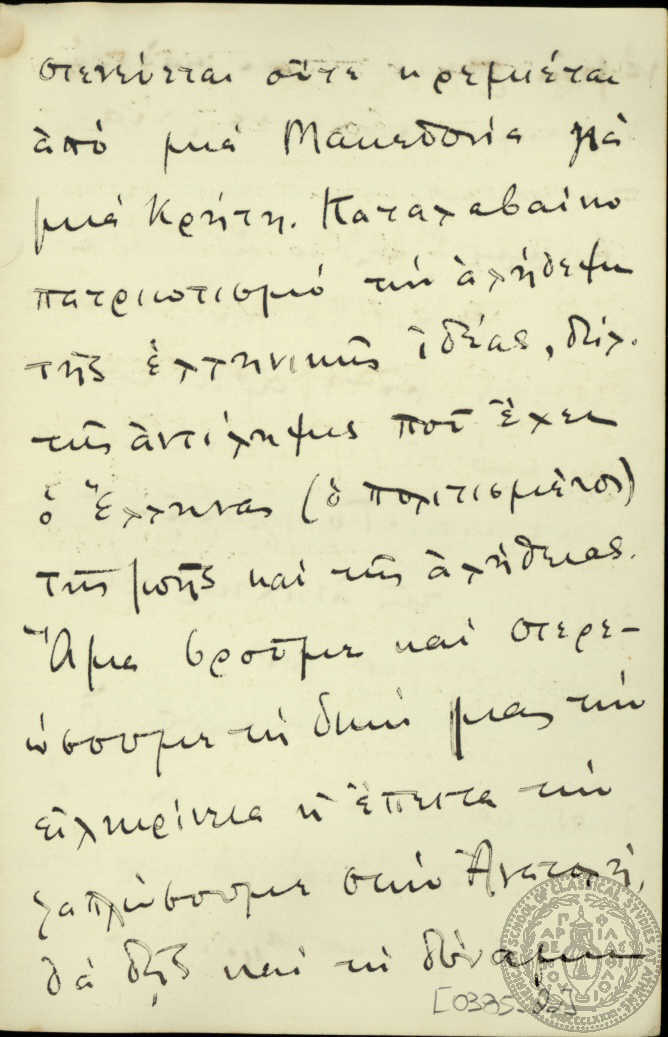 στενεύεται οὔτε κρεμιέται
ἀπό μιά Μακεδονία γιά
μιά Κρήτη. Καταλαβαίνω
πατριωτισμό τήν ἀλήθεψη
τῆς ἑλληνικῆς ἰδέας, δηλ.
τῆς ἀντίληψης ποῦ ἔχει
ὁ Ἕλληνας (ὁ πολιτισμένος)
τῆς ζωῆς καί τῆς ἀλήθειας.
Ἅμα βροῦμε καί στερε-
ώσουμε τή δική μας τήν
εἰλικρίνεια κ' ἔπειτα τήν
ξαπλώσουμε στήν Ἀνατολή,
θά δῇς καί τή δύναμη
[0335_02]
SCHOOL OF CLASSICAL STUDIES AT ATHENS